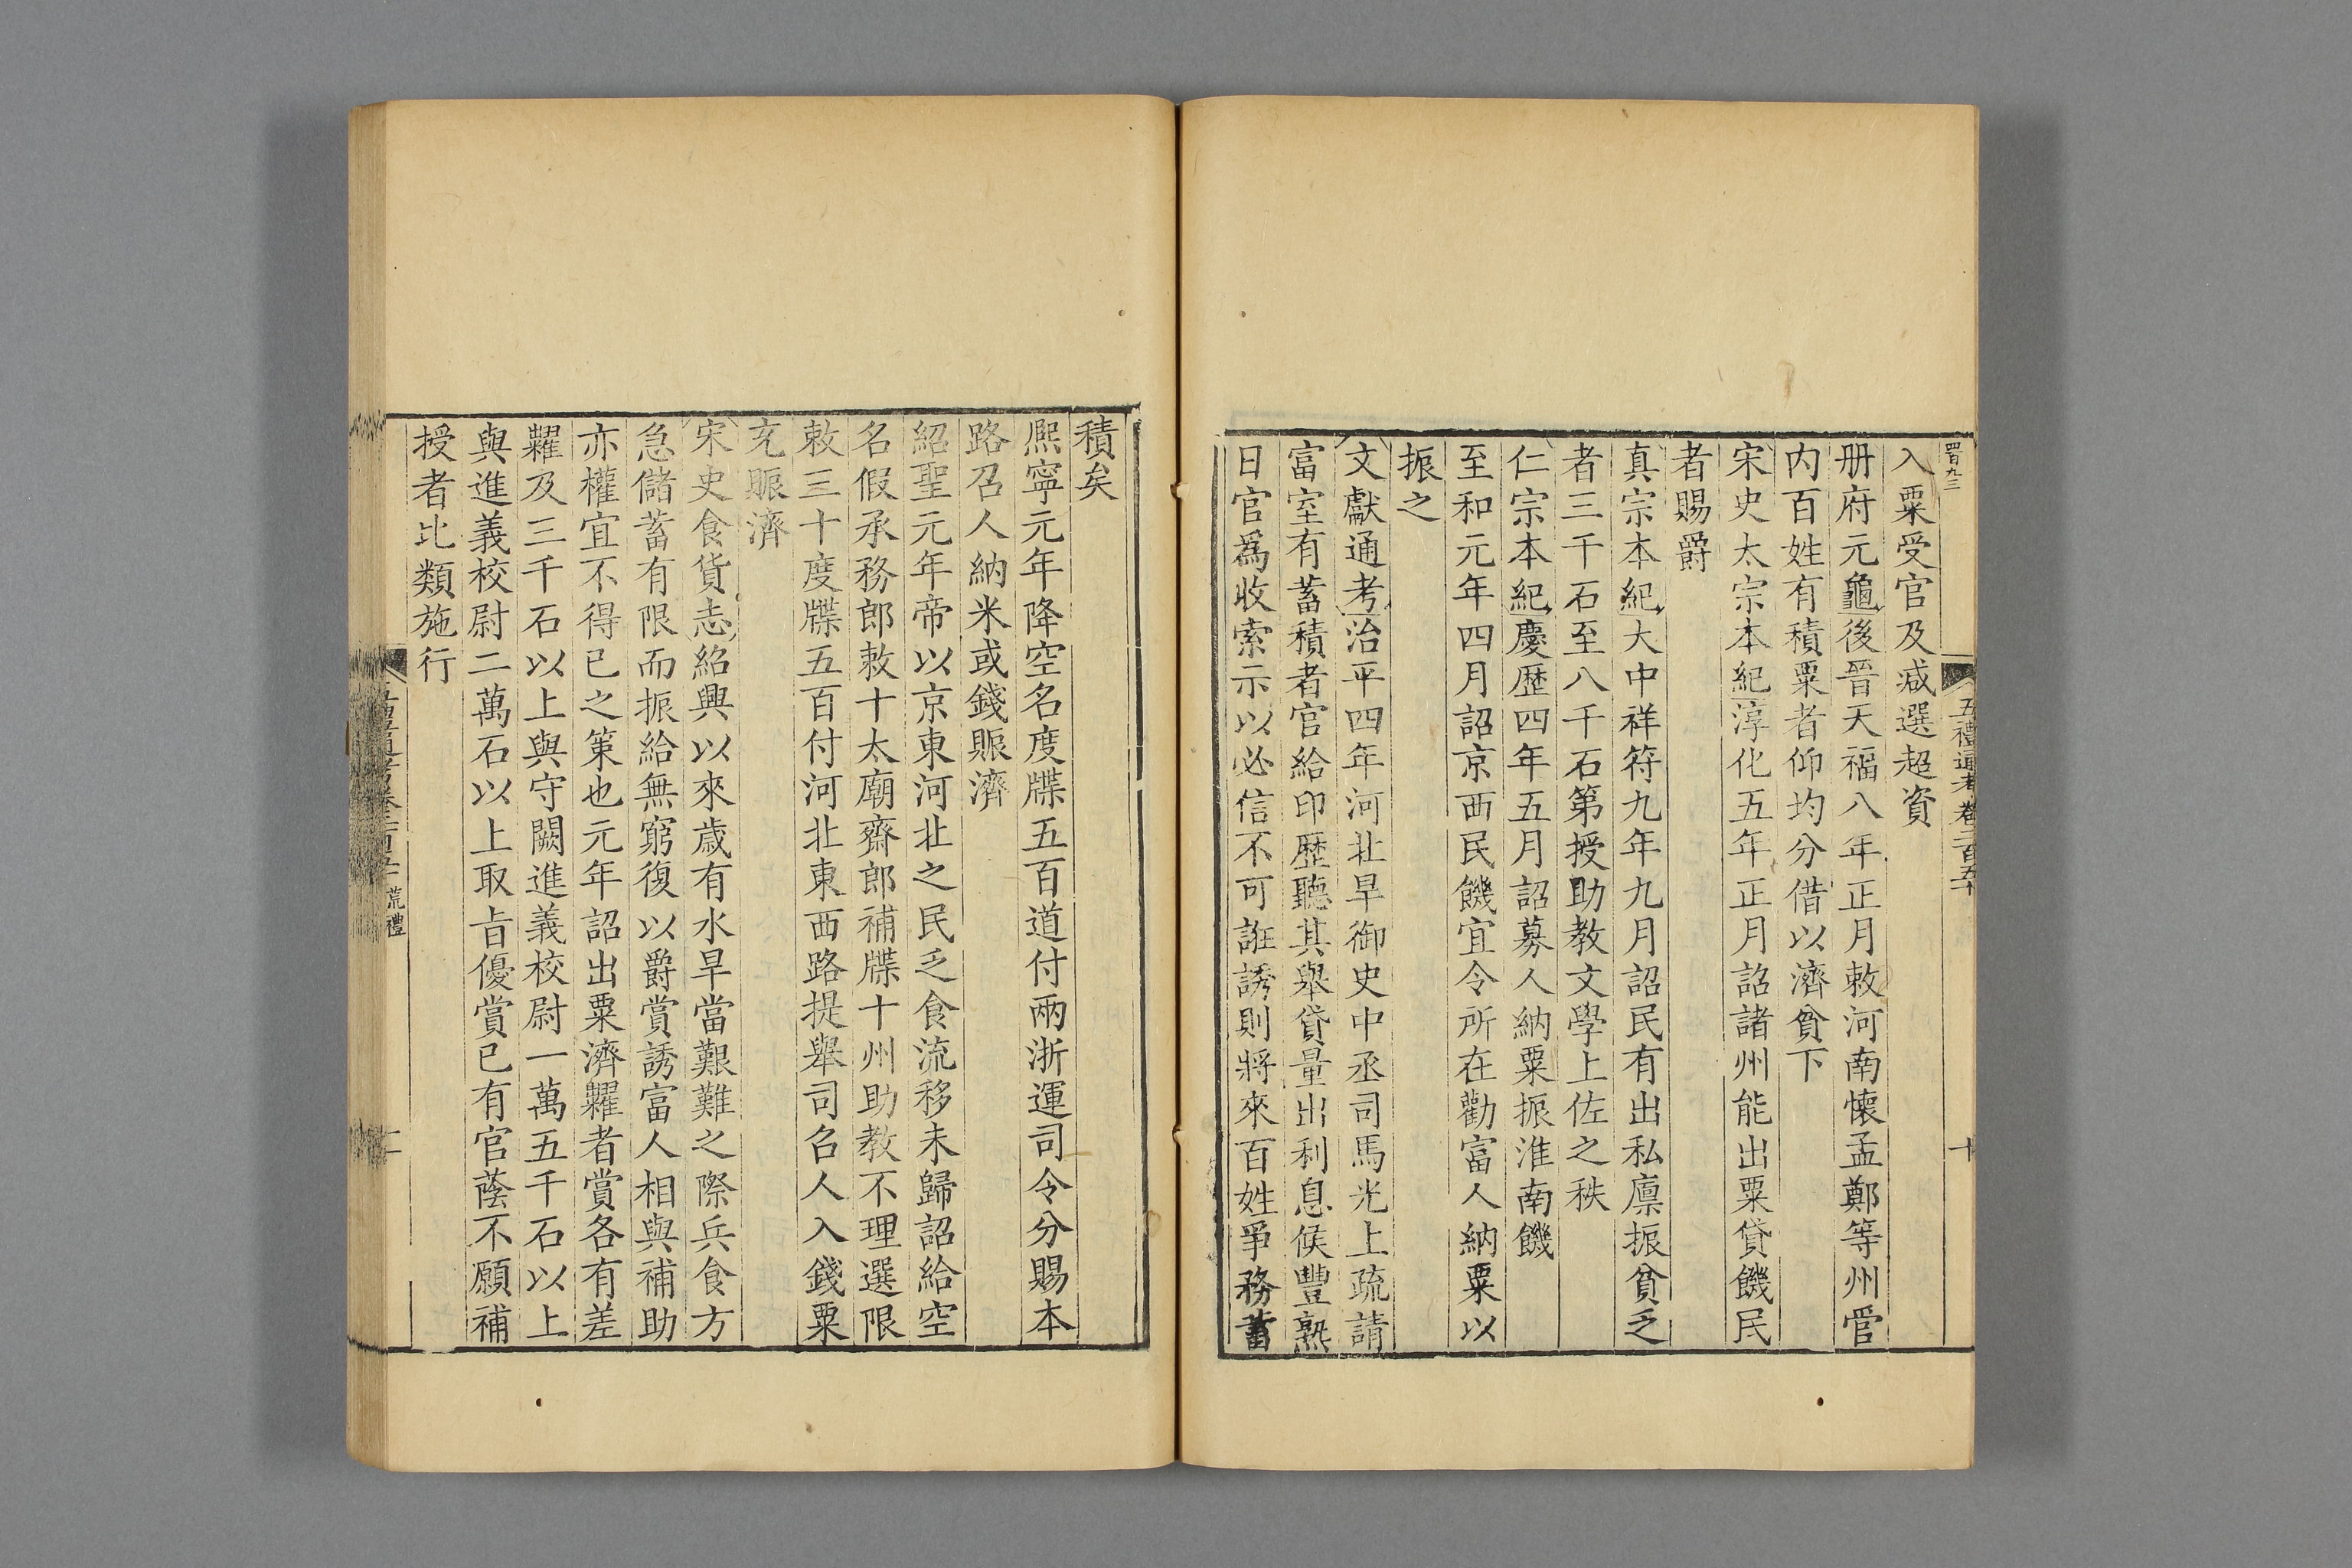 四百九三
五禮通考卷二百五十
十
入粟受官及减選超資
册府元龜後晉天福八年正月敕河南懷孟鄭等州管
内百姓有積粟者仰均分借以濟貧下
宋史太宗本紀淳化五年正月詔諸州能出粟貸饑民
者賜爵
真宗本紀大中祥符九年九月詔民有出私廩振貧乏
者三千石至八千石第授助教文學上佐之秩
仁宗本紀慶歷四年五月詔募人納粟振淮南饑
至和元年四月詔京西民饑宜令所在勸富人納粟以
振之
文獻通考治平四年河北旱御史中丞司馬光上疏請
富室有蓄積者官給印歷聽其舉貸量出利息候豐熟
日官爲收索示以必信不可誑誘則將來百姓爭務蓄
積矣
熈寧元年降空名度牒五百道付兩浙運司令分賜本
路召人納米或錢賑濟
紹聖元年帝以京東河北之民乏食流移未歸詔給空
名假承務郎敕十太廟齋郎補牒十州助教不理選限
敕三十度牒五百付河北東西路提舉司召人入錢粟
充賑濟
宋史食貨志紹興以來歲有水旱當艱難之際兵食方
急儲蓄有限而振給無窮復以爵賞誘富人相與補助
亦權宜不得已之策也元年詔出粟濟糶者賞各有差
糶及三千石以上與守闕進義校尉一萬五千石以上
與進義校尉二萬石以上取旨優賞已有官蔭不願補
授者比類施行
荒禮